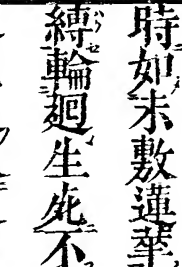 時如未敷蓮華
縛輪廻生死不